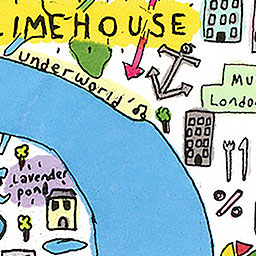 LIMEHOUSE
underworld'
MU
London
Lavender
pond